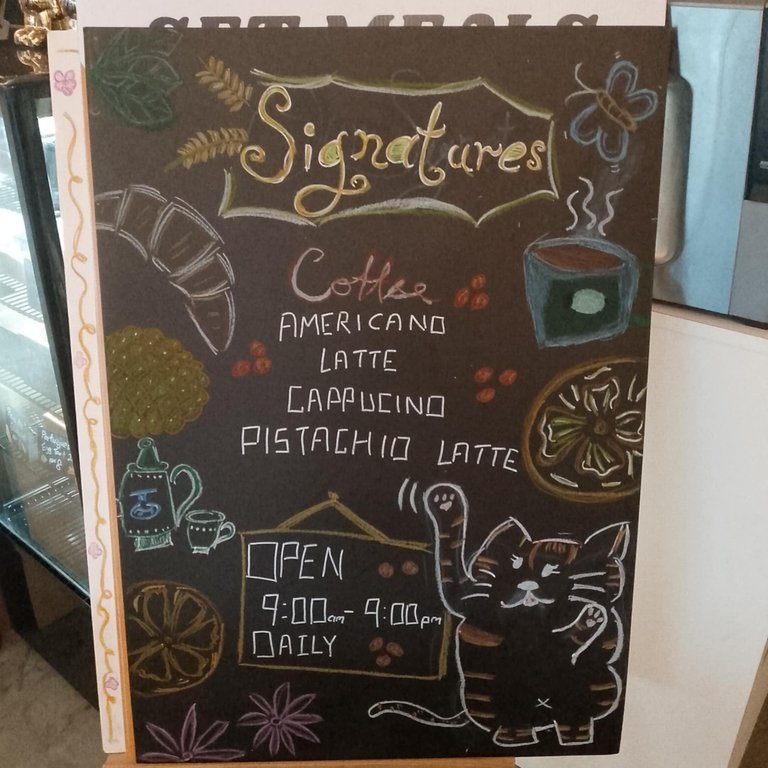 SET MEALS
Signatures
Coffee
AMERICANO
LATTE
CAPPUCINO
PISTACHIO LATTE
OPEN
9:00am - 9:00pm
DAILY
Portuguese
Egg Tart